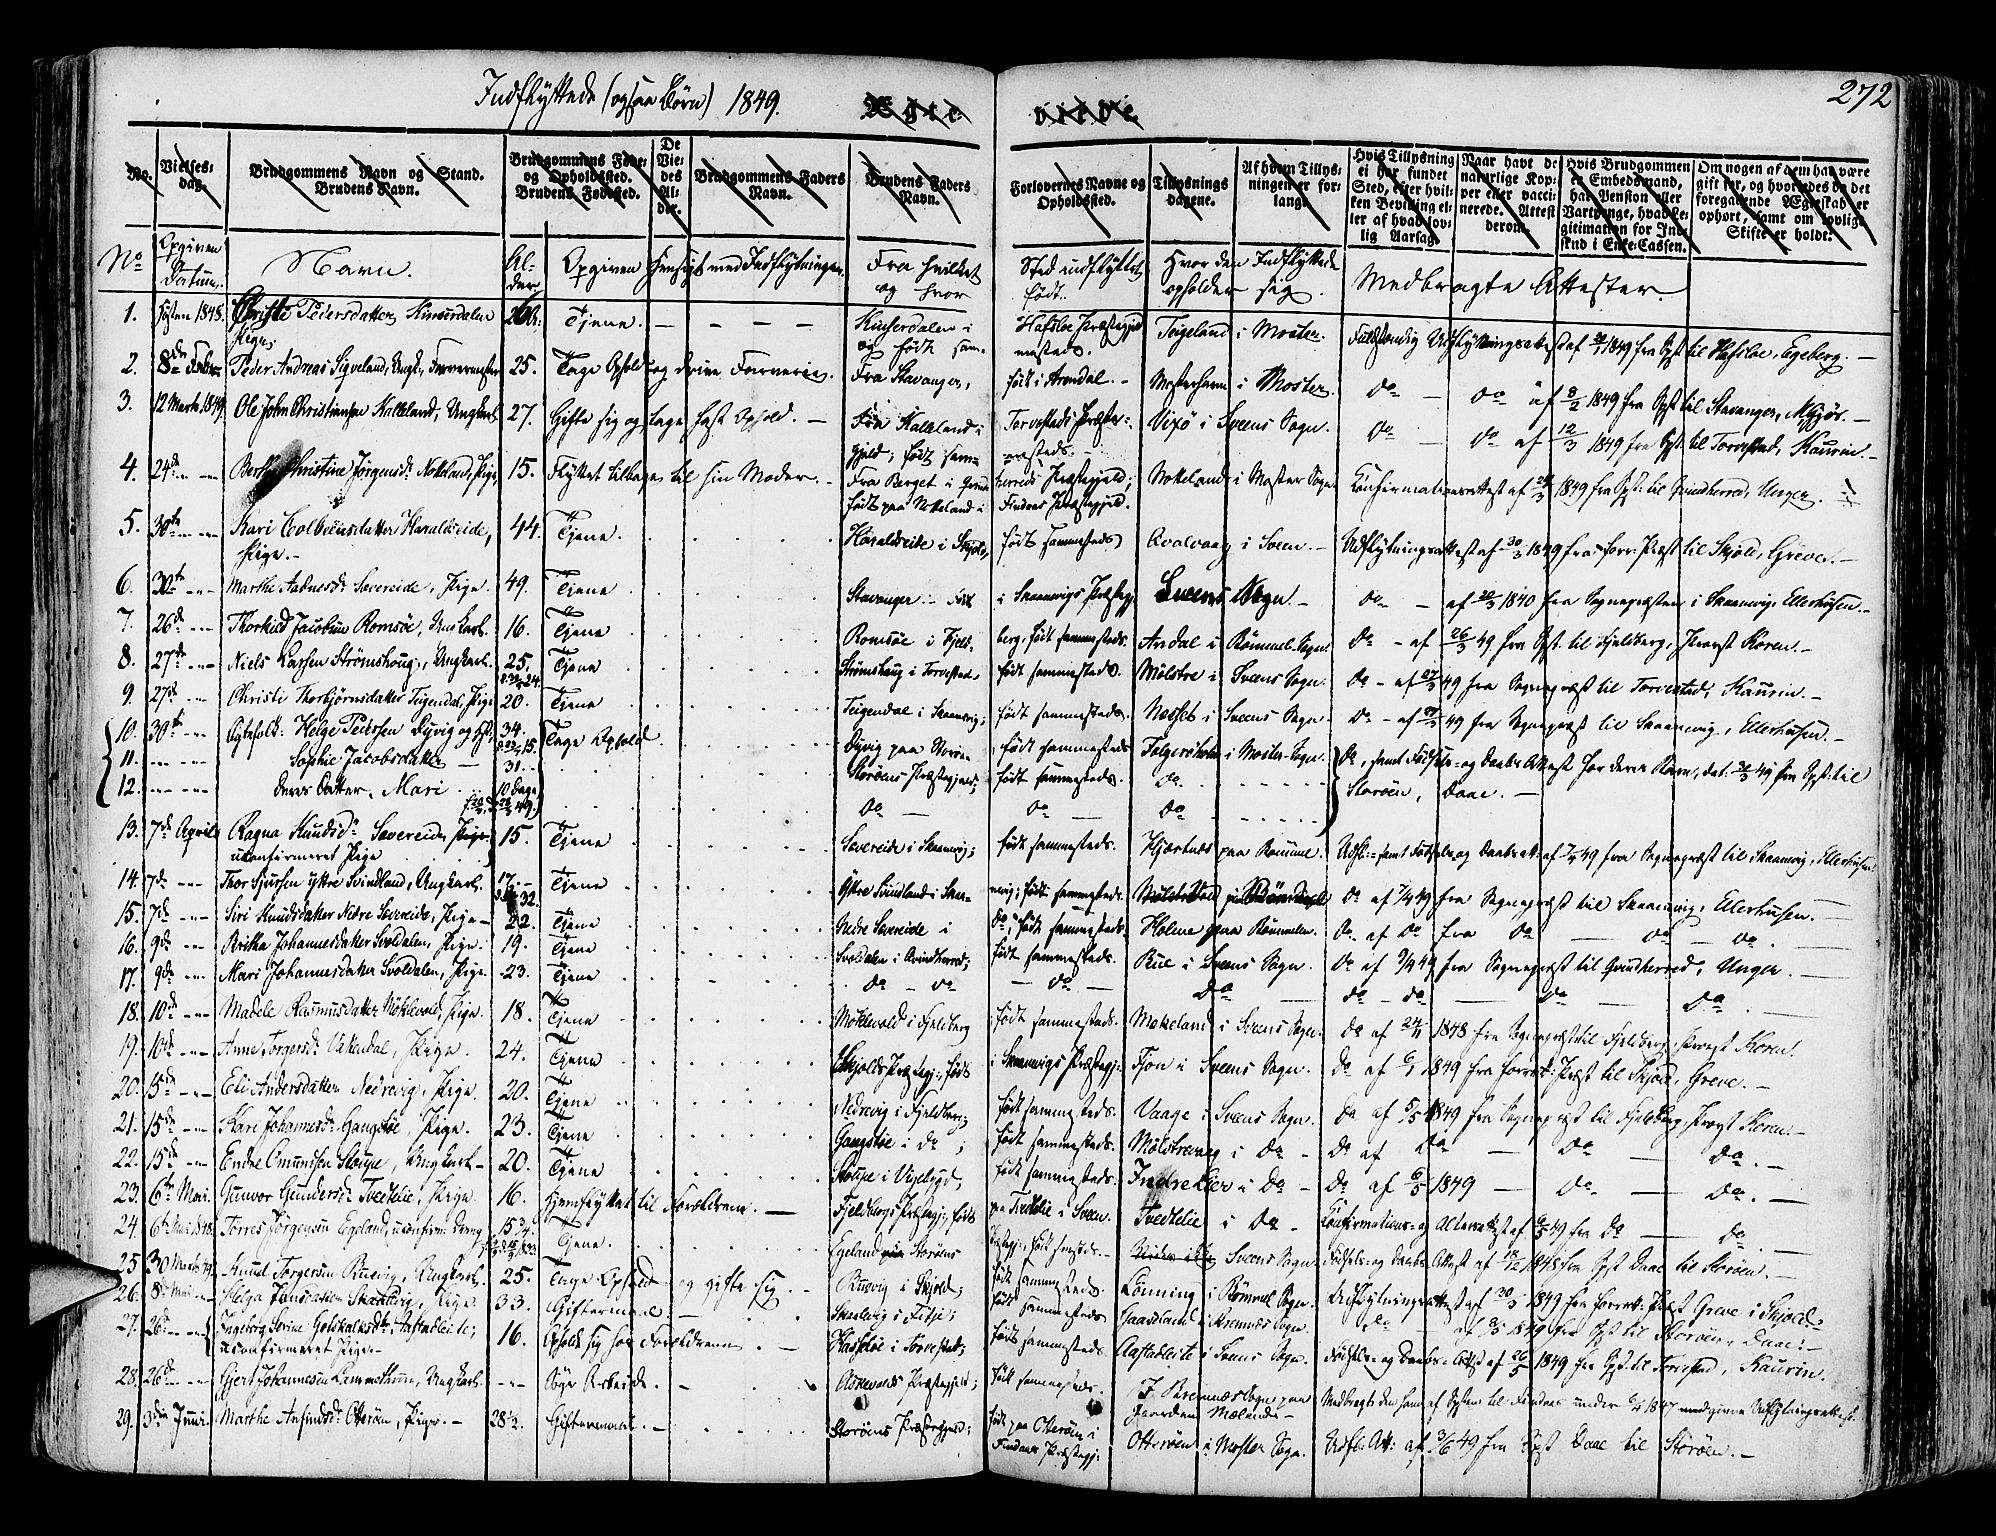 Indflyttede (ogsaa Børn) 1849.
272
No.
Vielses-
dag.
Brudgommens Navn og Stand.
Brudens Navn.
Brudgommens Føde-
og Opholdssted.
Brudens Fødested.
De
Vie-
des
Al-
der.
Brudgommens Faders
Navn.
Brudens Faders
Navn.
Forlovernes Navne og
Opholdssted.
Tillysnings
dagene.
Af hvem Tillys-
ningen er for-
langt.
Hvis Tillysning
ei har fundet
Sted, efter hvil-
ken Bevilling el-
ler af hvad lov-
lig Aarsag.
Naar havt de
naturlige Kop-
per eller vacci-
nerede. Attest
derom.
Hvis Brudgommen
er Embedsmand,
har Pension eller
Vartpenge, hvad Le-
gitimation for Ind-
skud i Enke-Cassen.
Om nogen af dem har være
gift før, og hvorledes da det
foregaaende Ægteskab er
ophørt, samt om lovligt
Skifte er holdt.
No
Opgiven
Datum.
Navn.
Al-
der.
Opgiven Hensigt med Indflytningen.
Fra hvilket
og hvor
Sted indflyttet,
født.
Hvor den Indflyttede
opholder sig.
Medbragte Attester.
1. Høsten 1848. Christi Pedersdatter Kinserdalen Tjene. Kinserdalen i Hafsloe Præstegjeld Teigeland i Moster. Fuldstændig Udflytningsattest af 1849 fra Spst til Hafsloe, Egeberg.
Pige; og født sam- mesteds.
2. 8de Febr. Peder Andreas Sigveland, Ungk., Farvermester 25. Tage Ophold og drive Farverie. Fra Stavanger, født i Arendal. Mosterhavn i Moster. do do af 8/2 1849 fra Spst til Stavanger,
3. 12 Marts 1849. Ole John Christiansen Kalleland, Ungkarl 27. Gifte sig og tage fast Ophold. Fra Kalleland i Torvestads Præste- Vixø i Sveens Sogn. do do af 12/3 1849 fra Spst til Torvestad, Kaurin.
gjeld; født sam- mesteds.
4. 24de Berthe Christine Jørgensd. Nokeland, Pige, 15. Flyttet tilbage til sin Moder. Fra Berget i Qvind- herreds Præstegjeld; Nokeland i Moster Sogn Confirmationsattest af 1849 fra Spst. til Qvindherred, Unger.
født paa Nokeland i Findaas Præstegjeld.
5. 30te Kari Colbeinsdatter Haraldseide, 44. Tjene. Haraldseide i Skjold, født sammesteds Qvalvaag i Sveen. Udflytningsattest af 30/3 1849 fra forr. Præst til Skjold, Greve.
Pige.
6. 30te Marthe Aadnesd. Sævereide, Pige. 49. Tjene Stavanger født i Skaanevigs Præstegj. Sveens Sogn. do af 20/3 1840 fra Sognepræsten i Skaanevig, Ellerhusen.
7. 26de Thorkild Jacobsen Romsøe, Ungkarl. 16. Tjene Romsøe i Fjeld- berg, født sammesteds. Ardal i Rømmel Sogn. do af 26/3 49 fra Spst til Fjeldberg, Provst Koren.
8. 27de Niels Larsen Strømshoug, Ungkarl. 25. Tjene Strømshaug i Torvestad, født sammesteds. Mølstre i Sveens Sogn. do af 27/3 49 fra Sognepræst til Torvestad, Kaurin.
9. 27de Christi Thorbjørnsdatter Teigendal, Pige 20. Tjene Teigendal i Skaanevig; født sammesteds. Næsset i Sveens Sogn. do af 49 fra Sognepræst til Skaanevig, Ellerhusen.
10. 30te Egtefolk: Helge Pedersen Dyvig og Hst. 34. Tage Ophold Dyvig paa født sammesteds. i Moster Sogn. do, samt Fødsels- og Daabs Attest for deres Barn, dat. 49 fra Spst. til
11. Sophie Jacobsdatter 31. Storøens Præstegjeld; født sammesteds. do. Storøen, Daae.
12. deres Datter, Mari 10 Dage do do do
13. 7de April Ragna Knudsd. Sævereide, Pige 15. Tjene Sævereide i Skaanevig; født sammesteds. Hjærtnæs paa Rømmel. Udfl. samt Fødsels- og Daabsatt. af 7/4 49 fra Sognepræst til Skaanevig, Ellerhusen.
ukonfirmeret Pige
14. 7de Thor Sjursen yttre Svindland, Ungkarl. 17. Tjene Yttre Svindland i Skaa- nevig; født sammesteds. do af 7/4 49 fra Sognepræst til Skaanevig, Ellerhusen.
15. 7de Siri Knudsdatter Nedre Sævereide, Pige 22. Tjene Nedre Sævereide i do; født sammesteds. Holme paa Rømmelen. do af do fra do do do.
16. 9de Britha Johannesdatter Svoldalen, Pige. 19. Tjene Svoldalen i Qvindherred; født sammesteds. Rue i Sveens Sogn. do af 9/4 49 fra Sognepræst til Qvindherred, Unger.
17. 9de Mari Johannesdatter Svoldalen, Pige. 23. Tjene do do do do do do do do.
18. 10de Madele Rasmusdatter Møklevold, Pige. 18. Tjene Møklevold i Fjeldberg født sammesteds. Mokeland i Sveens Sogn. do af 24/11 1848 fra Sognepræst til Fjeldberg, Provst Koren.
19. 10de Anne Torgersd. Vakendal, Pige. 24. Tjene Skjolds Præstegj., født i Skaanevigs Præstegj. Tjon i Sveens Sogn. do af 1849 fra forret. Præst til Skjold, Greve.
20. 15de Eli Andersdatter Nedrevig, Pige. 20. Tjene Nedrevig i Fjeldberg; født sammesteds. Vaage i Sveens Sogn. do af 5/5 1849 fra Sognepræst til Fjeldberg, Provst Koren.
21. 15de Kari Johannesd. Gangstøe, Pige. 23. Tjene Gangstøe i do; født sammesteds. Mølstrevaag i do do af do do do.
22. 15de Endre Omundsen Støupe, Ungkarl 20. Tjene Støupe i Vigebygd, født sammesteds. Indre Lier i do do af 1849 do do.
23. 6te Mai. Gunvor Gundersd. Tvedtelie, Pige. 16. Hjemflyttet til Forældrene. Fjeldbergs Præstegj., født paa Tvedtelie i Sveen. Tvedtelie i do Confirmations- og Altersattest af 49 fra do do.
24. 6te Mai 1848. Torres Jørgensen Egeland, uconfirm. Dreng 15 3/4. Tjene. Egeland paa Storøens Præstegj., født sammesteds. Sveens Sogn. Fødsels- og Daabs Attest af 1848 fra Spst Daae til Storøen.
25 30 Marts 49. Knud Torgersen Ruevig, Ungkarl. 25. Tage Ophold og gifte sig. Ruevig i Skjold, født sammesteds. Lønning i Rømmel Sogn. Udflytningsattest af 30/3 1849 fra forret. Præst Greve i Skjold.
26. 8de Mai Helga Jonsdatter Skaalevig, Pige. 33. Giftermaal Skaalevig i Fitje; født sammesteds Gaasland i Bremnæs Sogn. do af 8/5 1849 fra Spst til Storøen, Daae.
27. 26de Ingeborg Serine Gotskalksdtr. Aastadleite; 16. Ophold sig hos Forældrene Hasseløe i Torvestad; født sammesteds Aastadleite i Sveens Sogn. Fødsels- og Daabs-Attest af 26/5 1849 fra Spst til Torvestad, Kaurin.
uconfirmeret Pige.
28. 26de Gjert Johannesen Lammethun, Ungkarl. Søge Arbeide. Præstegjeld; født sammesteds. I Bremnæs Sogn paa Medbragte den ham af Spsten til Findaas under 1847 medgivne Udflytningsattest.
Gaarden Mølande
29. 3die Juni. Marthe Amundsd. Otterøen, Pige. 28 1/2. Giftermaal. Storøens Præstegjeld; født paa Otterøen i Otterøen i Moster Sogn. Udfl. Att. af 3/6 49 fra Spst Daae til Storøen.
Findaas Præstegj.